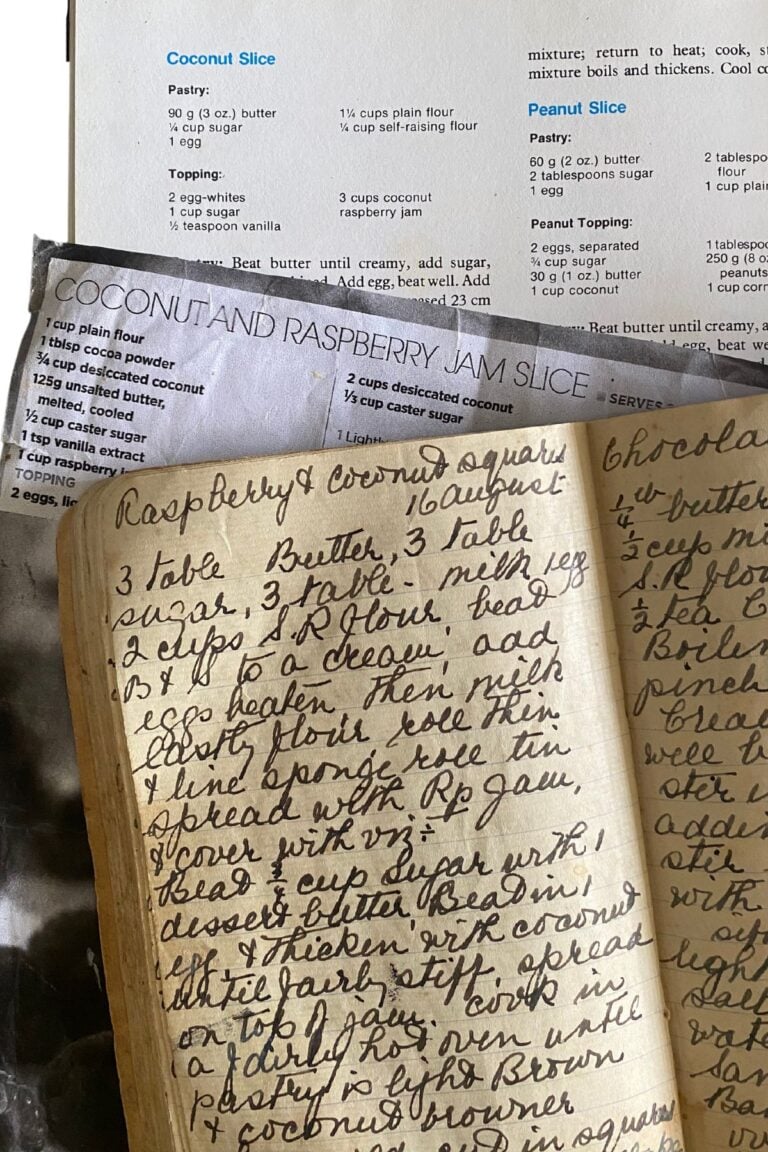 Coconut Slice
Pastry:
90 g (3 oz.) butter
¼ cup sugar
1 egg
1¼ cups plain flour
¼ cup self-raising flour
Topping:
2 egg-whites
1 cup sugar
½ teaspoon vanilla
3 cups coconut
raspberry jam
Beat butter until creamy, add sugar,
Add egg, beat well. Add
23 cm
mixture; return to heat; cook,
mixture boils and thickens. Cool
Peanut Slice
Pastry:
60 g (2 oz.) butter
2 tablespoons sugar
1 egg
2
flour
1 cup
Peanut Topping:
2 eggs, separated
¾ cup sugar
30 g (1 oz.) butter
1 cup coconut
1
250 g (8
peanuts
1 cup
Beat butter until creamy,
egg, beat
COCONUT AND RASPBERRY JAM SLICE
SERVES
1 cup plain flour
1 tblsp cocoa powder
¾ cup desiccated coconut
125g unsalted butter,
melted, cooled
½ cup caster sugar
1 tsp vanilla extract
1 cup raspberry
TOPPING
2 eggs,
2 cups desiccated coconut
⅓ cup caster sugar
1
Raspberry & coconut squares
16 August
3 table Butter, 3 table
sugar, 3 table - milk 1 eg
2 cups S.R flour, beat
B & S to a cream, add
eggs beaten, then milk
lastly flour roll thin
& line sponge roll tin
spread with Rp Jam,
& cover with viz ÷
Beat ¾ cup sugar with 1
dessert butter, Beat in 1
egg, & thicken with coconut
until fairly stiff, spread
on top of jam. cook in
a fairly hot oven until
pastry is light Brown
& coconut browner
cut in squares
¼ lb butter
½ cup
S.R flour
½ tea
pinch
well
stir
stir
with
light
salt